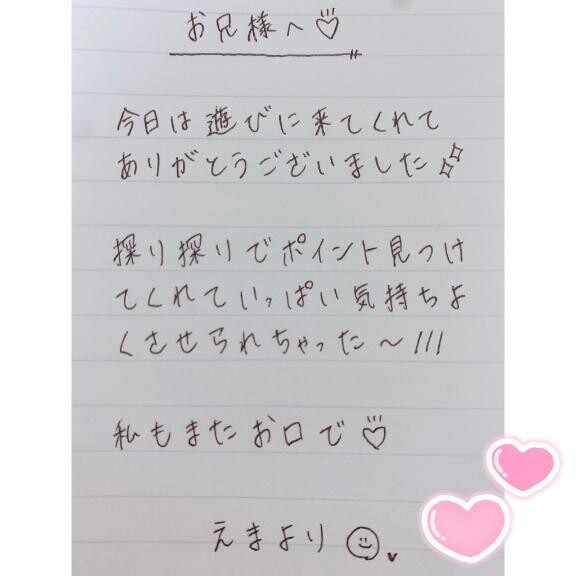 お兄様へ♡
今日は遊びに来てくれて
ありがとうございました✨
探り探りでポイント見つけ
てくれていっぱい気持ちよ
くさせられちゃった〜///
私もまたお口で♡
えまより☺♥